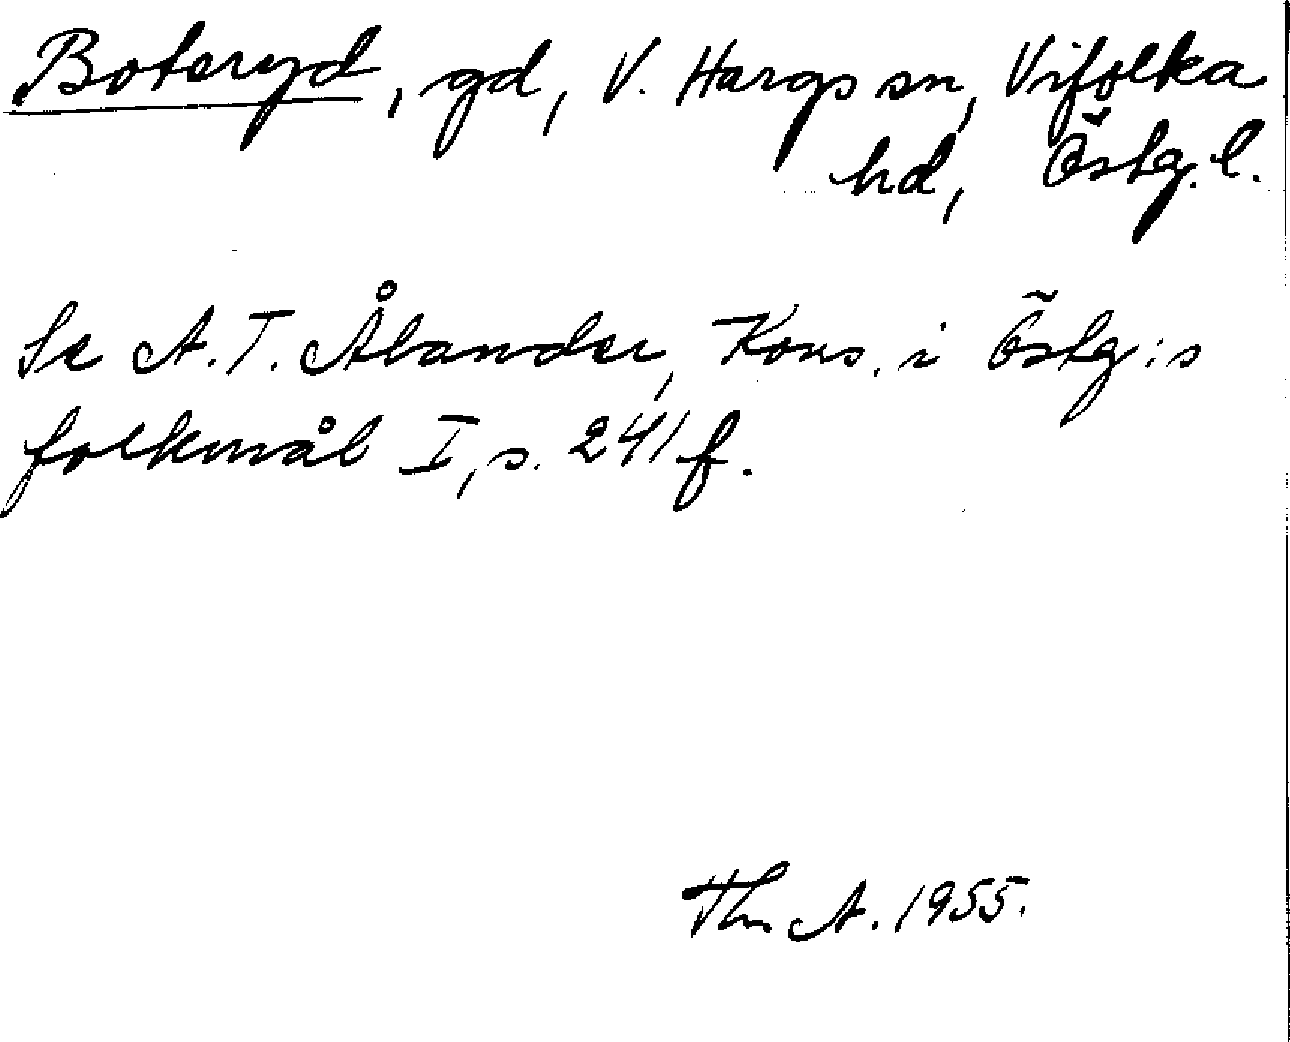 Boteryd, gd, V. Hargs sn, Vifolka
hd, Östg. l.
Se A. T. Ålander, Kons. i Östg:s
folkmål I, s. 241 f.
Th. A. 1955.